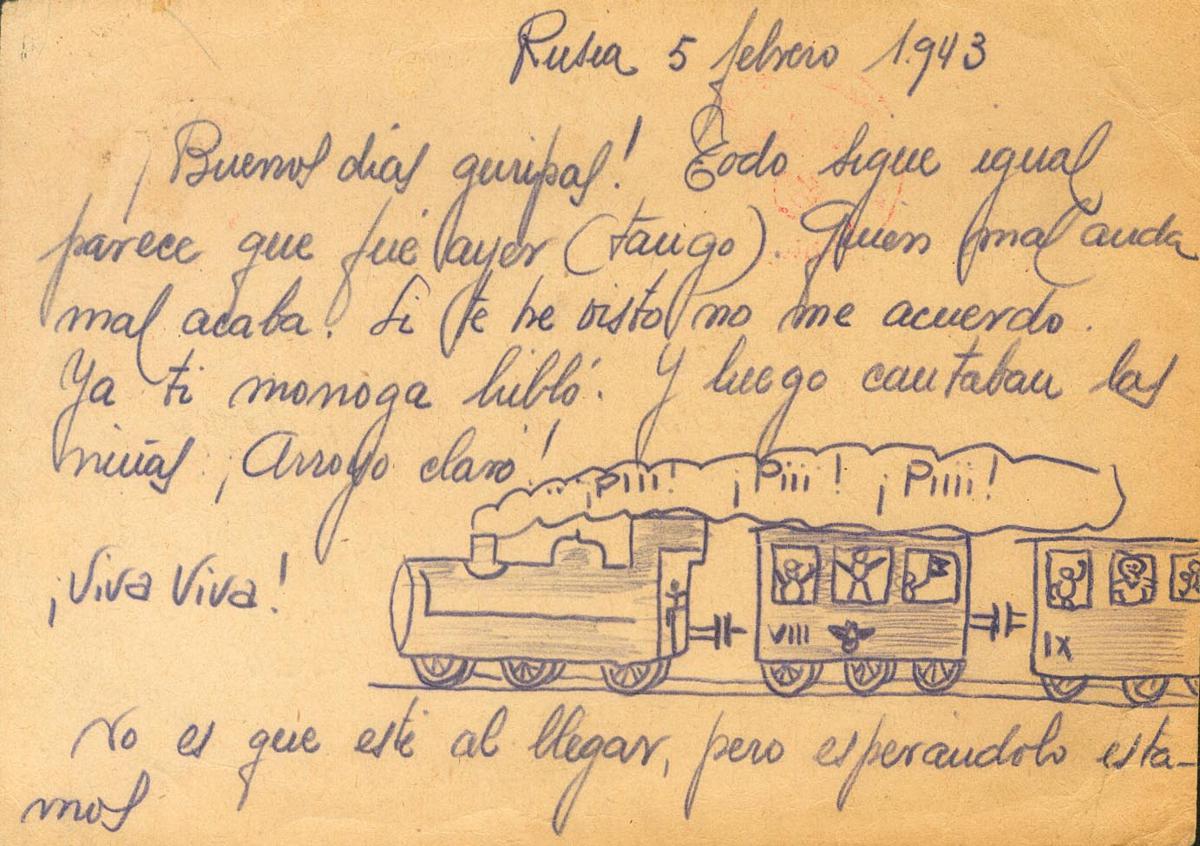 Rusia 5 febrero 1.943
¡Buenos dias guripas! Todo sigue igual
parece que fué ayer (tango). Quien mal anda
mal acaba. Si te he visto no me acuerdo.
Ya ti monoga hibló. Y luego cantaban las
niñas ¡Arroyo claro!
... ¡Piii! ¡Piii! ¡Piiii!
¡Viva Viva!
VIII
IX
No es que esté al llegar, pero esperándolo esta-
mos